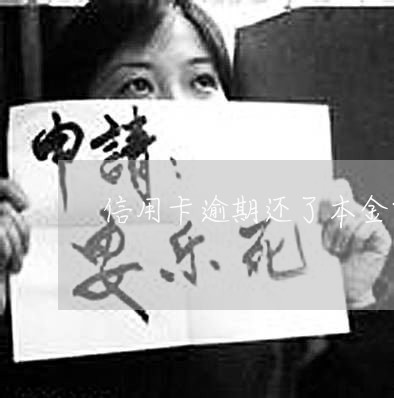 申請：
信用卡逾期还了本金
安乐死